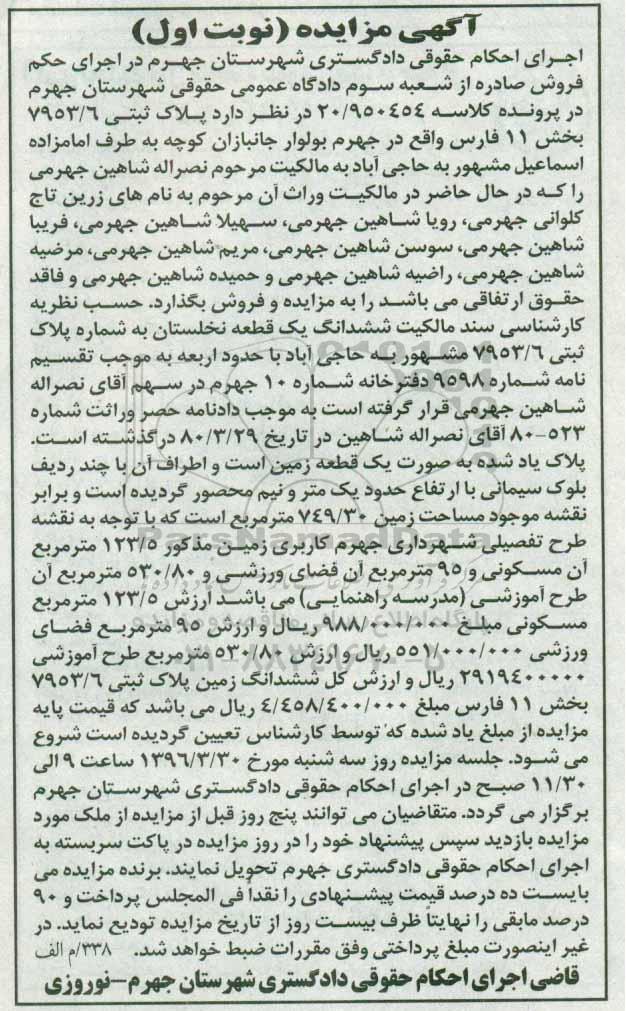 آگهی مزایده (نوبت اول)
اجرای احکام حقوقی دادگستری شهرستان جهرم در اجرای حکم
فروش صادره از شعبه سوم دادگاه عمومی حقوقی شهرستان جهرم
در پرونده کلاسه ۲۰/۹۵۰۴۵۴ در نظر دارد پلاک ثبتی ۷۹۵۳/۶
بخش ۱۱ فارس واقع در جهرم بولوار جانبازان کوچه به طرف امامزاده
اسماعیل مشهور به حاجی آباد به مالکیت مرحوم نصراله شاهین جهرمی
را که در حال حاضر در مالکیت وراث آن مرحوم به نام های زرین تاج
کلوانی جهرمی، رویا شاهین جهرمی، سهیلا شاهین جهرمی، فریبا
شاهین جهرمی، سوسن شاهین جهرمی، مریم شاهین جهرمی، مرضیه
شاهین جهرمی، راضیه شاهین جهرمی و حمیده شاهین جهرمی و فاقد
حقوق ارتفاقی می باشد را به مزایده و فروش بگذارد. حسب نظریه
کارشناسی سند مالکیت ششدانگ یک قطعه نخلستان به شماره پلاک
ثبتی ۷۹۵۳/۶ مشهور به حاجی آباد با حدود اربعه به موجب تقسیم
نامه شماره ۹۵۹۸ دفترخانه شماره ۱۰ جهرم در سهم آقای نصراله
شاهین جهرمی قرار گرفته است به موجب دادنامه حصر وراثت شماره
۵۲۳-۸۰ آقای نصراله شاهین در تاریخ ۸۰/۳/۲۹ درگذشته است.
پلاک یاد شده به صورت یک قطعه زمین است و اطراف آن با چند ردیف
بلوک سیمانی با ارتفاع حدود یک متر و نیم محصور گردیده است و برابر
نقشه موجود مساحت زمین ۷۴۹/۳۰ مترمربع است که با توجه به نقشه
طرح تفصیلی شهرداری جهرم کاربری زمین مذکور ۱۲۳/۵ مترمربع
آن مسکونی و ۹۵ مترمربع آن فضای ورزشی و ۵۳۰/۸۰ مترمربع آن
طرح آموزشی (مدرسه راهنمایی) می باشد ارزش ۱۲۳/۵ مترمربع
مسکونی مبلغ ۹۸۸/۰۰۰/۰۰۰ ریال و ارزش ۹۵ مترمربع فضای
ورزشی ۵۵۱/۰۰۰/۰۰۰ ریال و ارزش ۵۳۰/۸۰ مترمربع طرح آموزشی
۲۹۱۹۴۰۰۰۰۰ ریال و ارزش کل ششدانگ زمین پلاک ثبتی ۷۹۵۳/۶
بخش ۱۱ فارس مبلغ ۴/۴۵۸/۴۰۰/۰۰۰ ریال می باشد که قیمت پایه
مزایده از مبلغ یاد شده که توسط کارشناس تعیین گردیده است شروع
می شود. جلسه مزایده روز سه شنبه مورخ ۱۳۹۶/۳/۳۰ ساعت ۹ الی
۱۱/۳۰ صبح در اجرای احکام حقوقی دادگستری شهرستان جهرم
برگزار می گردد. متقاضیان می توانند پنج روز قبل از مزایده از ملک مورد
مزایده بازدید سپس پیشنهاد خود را در روز مزایده در پاکت سربسته به
اجرای احکام حقوقی دادگستری جهرم تحویل نمایند. برنده مزایده می
بایست ده درصد قیمت پیشنهادی را نقدا فی المجلس پرداخت و ۹۰
درصد مابقی را نهایتا ظرف بیست روز از تاریخ مزایده تودیع نماید. در
غیر اینصورت مبلغ پرداختی وفق مقررات ضبط خواهد شد. ۳۳۸/م الف
قاضی اجرای احکام حقوقی دادگستری شهرستان جهرم-نوروزی
ParsNamadData
۰۲۱-۸۸۳۴۹۶۷۰-۵